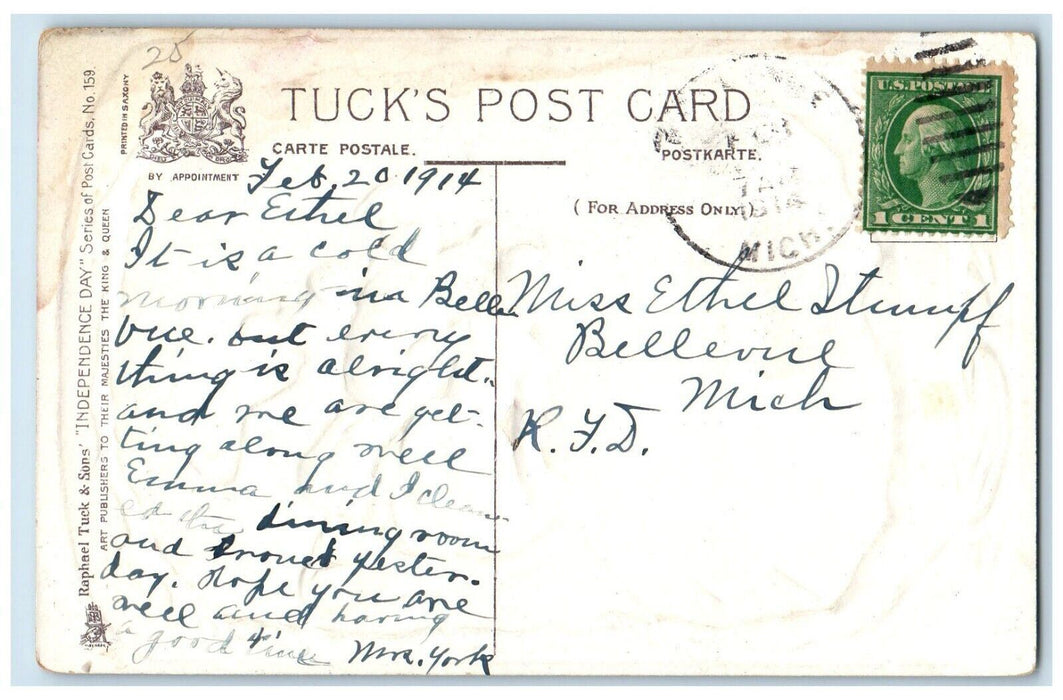 25
TUCK'S POST CARD
CARTE POSTALE.
POSTKARTE.
BY APPOINTMENT
(FOR ADDRESS ONLY.)
PRINTED IN SAXONY
Raphael Tuck & Sons' "INDEPENDENCE DAY" Series of Post Cards. No. 159.
ART PUBLISHERS TO THEIR MAJESTIES THE KING & QUEEN
U.S. POSTAGE
1 CENT 1
1914
MICH.
Feb 20 1914
Dear Ethel
It is a cold
morning in Belle
vue. but every
thing is alright.
and we are get-
ting along well
Emma and I clean
ed the dining room
and yester-
day. Hope you are
well and having
a good time
Mrs. York
Miss Ethel Stumpf
Bellevue
Mich
R.F.D.